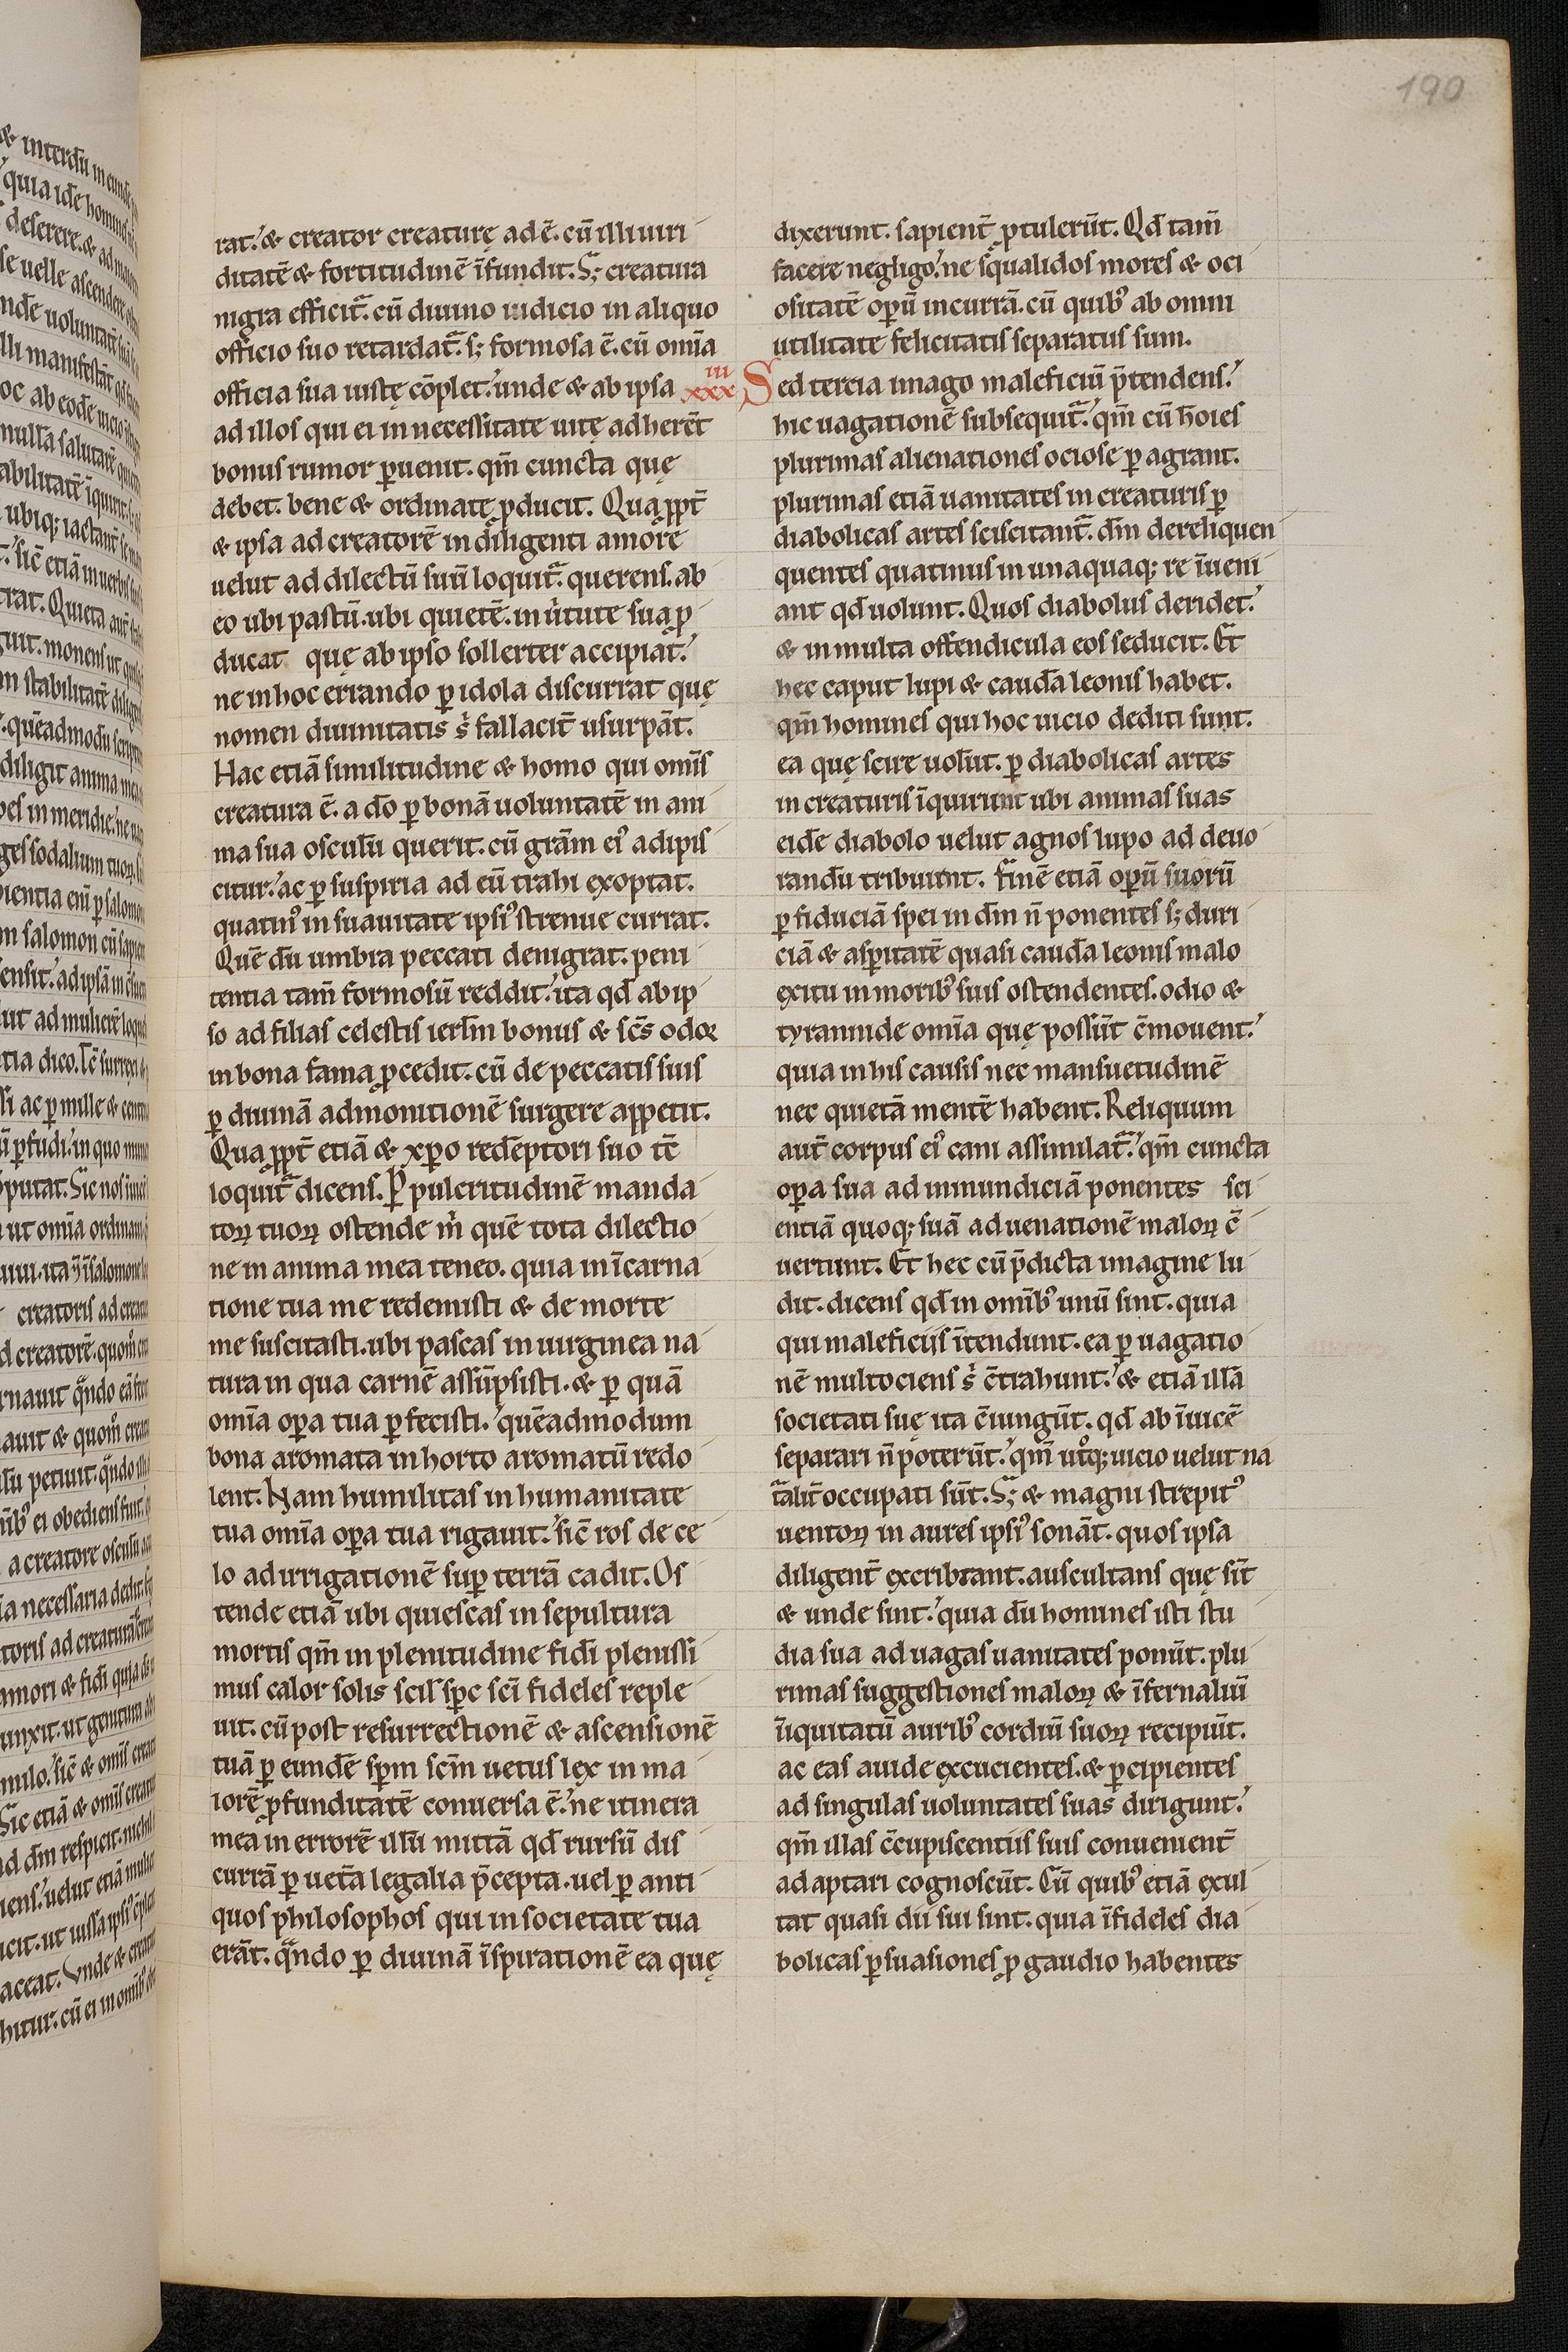 190
rat.' & creator creaturę adē. cū illi uiri
ditatē & fortitudinē īfundit. S; creatura
nigra efficit᷑. cū diuino iudicio in aliquo
officio suo retardat᷑. s; formosa ē. cū om̄ia
officia sua iustę cōplet.' unde & ab ipsa
ad illos qui ei in necessitate uitę adherēt
bonus rumor ꝑuenit. qm̄ cuncta quę
debet. bene & ordinate ꝓducit. Quaꝓpt̄
& ipsa ad creatorē in diligenti amore
uelut ad dilectū suū loquit᷑. querens. ab
eo ubi pastū. ubi quietē. in uͥtute sua ꝓ
ducat quę ab ipso sollerter accipiat.'
ne in hoc errando ꝑ idola discurrat quę
nomen diuinitatis sͥ fallacit̄ usurpāt.
Hac etiā similitudine & homo qui om̄is
creatura ē. a do ꝑ bonā uoluntatē in ani
ma sua osculū querit. cū gr̄am eiꝰ adipis
citur.' ac ꝑ suspiria ad eū trahi exoptat.
quatinꝰ in suauitate ipsiꝰ strenue currat.
Quē dū umbra peccati denigrat. peni
tentia tam̄ formosū reddit.' ita qd̄ ab ip
so ad filias celestis ierl̄m bonus & sc̄s odor
in bona fama ꝓcedit. cū de peccatis suis
ꝑ diuinā admonitionē surgere appetit.
Quaꝓpt̄ etiā & xp̄o redēptori suo tē
loquit᷑ dicens. P̱ pulcritudinē manda
toꝝ tuoꝝ ostende mͥ quē tota dilectio
ne in anima mea teneo. quia in īcarna
tione tua me redemisti & de morte
me suscitasti. ubi pascas in uirginea na
tura in qua carnē assūpsisti. & ꝑ quā
om̄ia oꝑa tua ꝑfecisti.' quēadmodum
bona aromata in horto aromatū redo
lent. Nam humilitas in humanitate
tua om̄ia oꝑa tua rigauit.' sic̄ ros de ce
lo ad irrigationē suꝑ terrā cadit. Os
tende etiā ubi quiescas in sepultura
mortis qm̄ in plenitudine fidi plenissi
mus calor solis scil̄ sp̄c sc̄i fideles reple
uit. cū post resurrectionē & ascensionē
tuā ꝑ eundē sp̄m sc̄m uetus lex in ma
iorē ꝓfunditatē conuersa ē.' ne itinera
mea in errorē illū mittā qd̄ rursū dis
currā ꝑ uet̄a legalia p̄cepta. uel ꝑ anti
quos philosophos qui in societate tua
erāt. qᷓndo ꝑ diuinā īspirationē ea quę
dixerunt. sapient̄ ꝓtulerūt. Qd̄ tam̄
facere negligo.' ne squalidos mores & oci
ositatē oꝑū incurrā. cū quibꝰ ab omni
utilitate felicitatis separatus sum.
xxxiii Sed tercia imago maleficiū p̄tendens.'
hic uagationē subsequit᷑.' qm̄ cū hoīes
plurimas alienationes ociose ꝑagrant.
plurimas etiā uanitates in creaturis ꝑ
diabolicas artes sciscitant᷑. dm̄ dereliquen
quentes quatinus in unaquaq; re īueni
ant qd̄ uolunt. Quos diabolus deridet.'
& in multa offendicula eos seducit. Et
hec caput lupi & caudā leonis habet.
qm̄ homines qui hoc uicio dediti sunt.
ea quę scire uolūt. ꝑ diabolicas artes
in creaturis īquirunt ubi animas suas
eidē diabolo uelut agnos lupo ad deuo
randū tribuunt. Finē etiā oꝑū suorū
ꝑ fiduciā spei in dm̄ n̄ ponentes s; duri
ciā & asꝑitatē quasi caudā leonis malo
exitu in moribꝰ suis ostendentes. odio &
tyrannide om̄ia quę possūt c̄mouent.'
quia in his causis nec mansuetudinē
nec quietā mentē habent. Reliquum
aut̄ corpus eiꝰ cani assimilat᷑.' qm̄ cuncta
oꝑa sua ad inmundiciā ponentes sci
entiā quoq; suā ad uenationē maloꝝ c̄
uertunt. Et hec cū p̄dicta imagine lu
dit. dicens qd̄ in om̄ibꝰ unū sint. quia
qui maleficijs ītendunt. ea ꝑ uagatio
nē multociens sͥ c̄trahunt.' & etiā illā
societati suę ita c̄iungūt. qd̄ ab īuicē
separari n̄ poterūt.' qm̄ utͦq; uicio uelut na
t᷑alit̄ occupati sūt. S; & magni strepitꝰ
uentoꝝ in aures ipsiꝰ sonāt. quos ipsa
diligent̄ excribrant. auscultans quę sīt
& unde sint.' quia dū homines isti stu
dia sua ad uagas uanitates ponūt. plu
rimas suggestiones maloꝝ & īfernaliū
īiquitatū auribꝰ cordiū suoꝝ recipiūt.
ac eas auide excucientes. & ꝑcipientes
ad singulas uoluntates suas dirigunt.'
qm̄ illas c̄cupiscentiis suis conuenient̄
adaptari cognoscūt. Cū quibꝰ etiā exul
tat quasi dii sui sint. quia īfideles dia
bolicas ꝑsuasiones ꝓ gaudio habentes